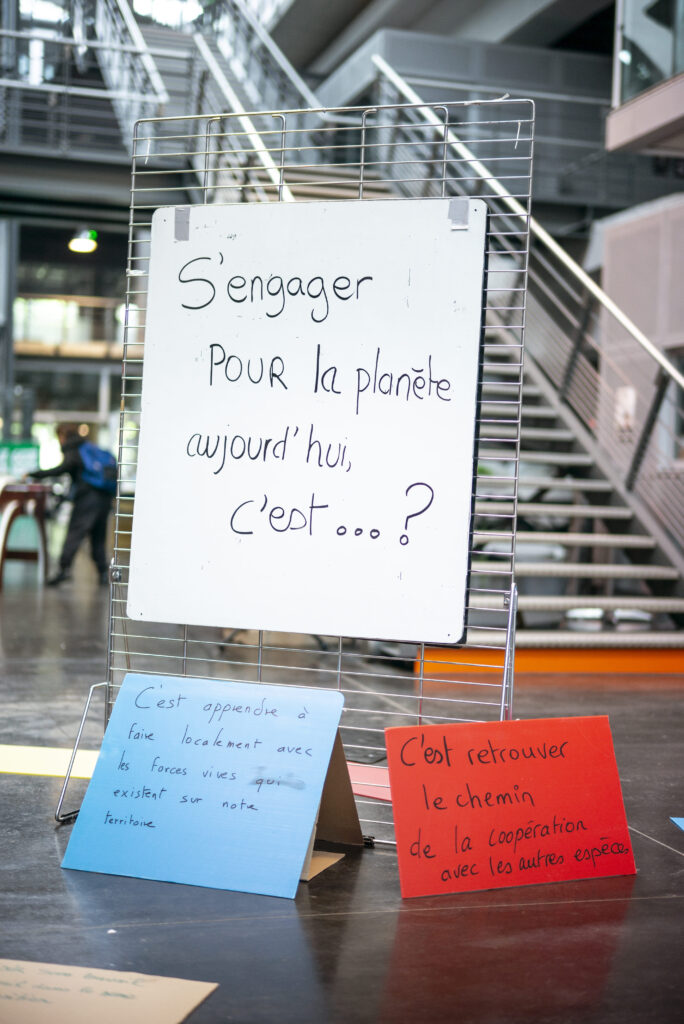 S'engager
POUR la planète
aujourd'hui,
c'est...?
C'est apprendre à
faire localement avec
les forces vives qui
existent sur notre
territoire
C'est retrouver
le chemin
de la coopération
avec les autres espèces